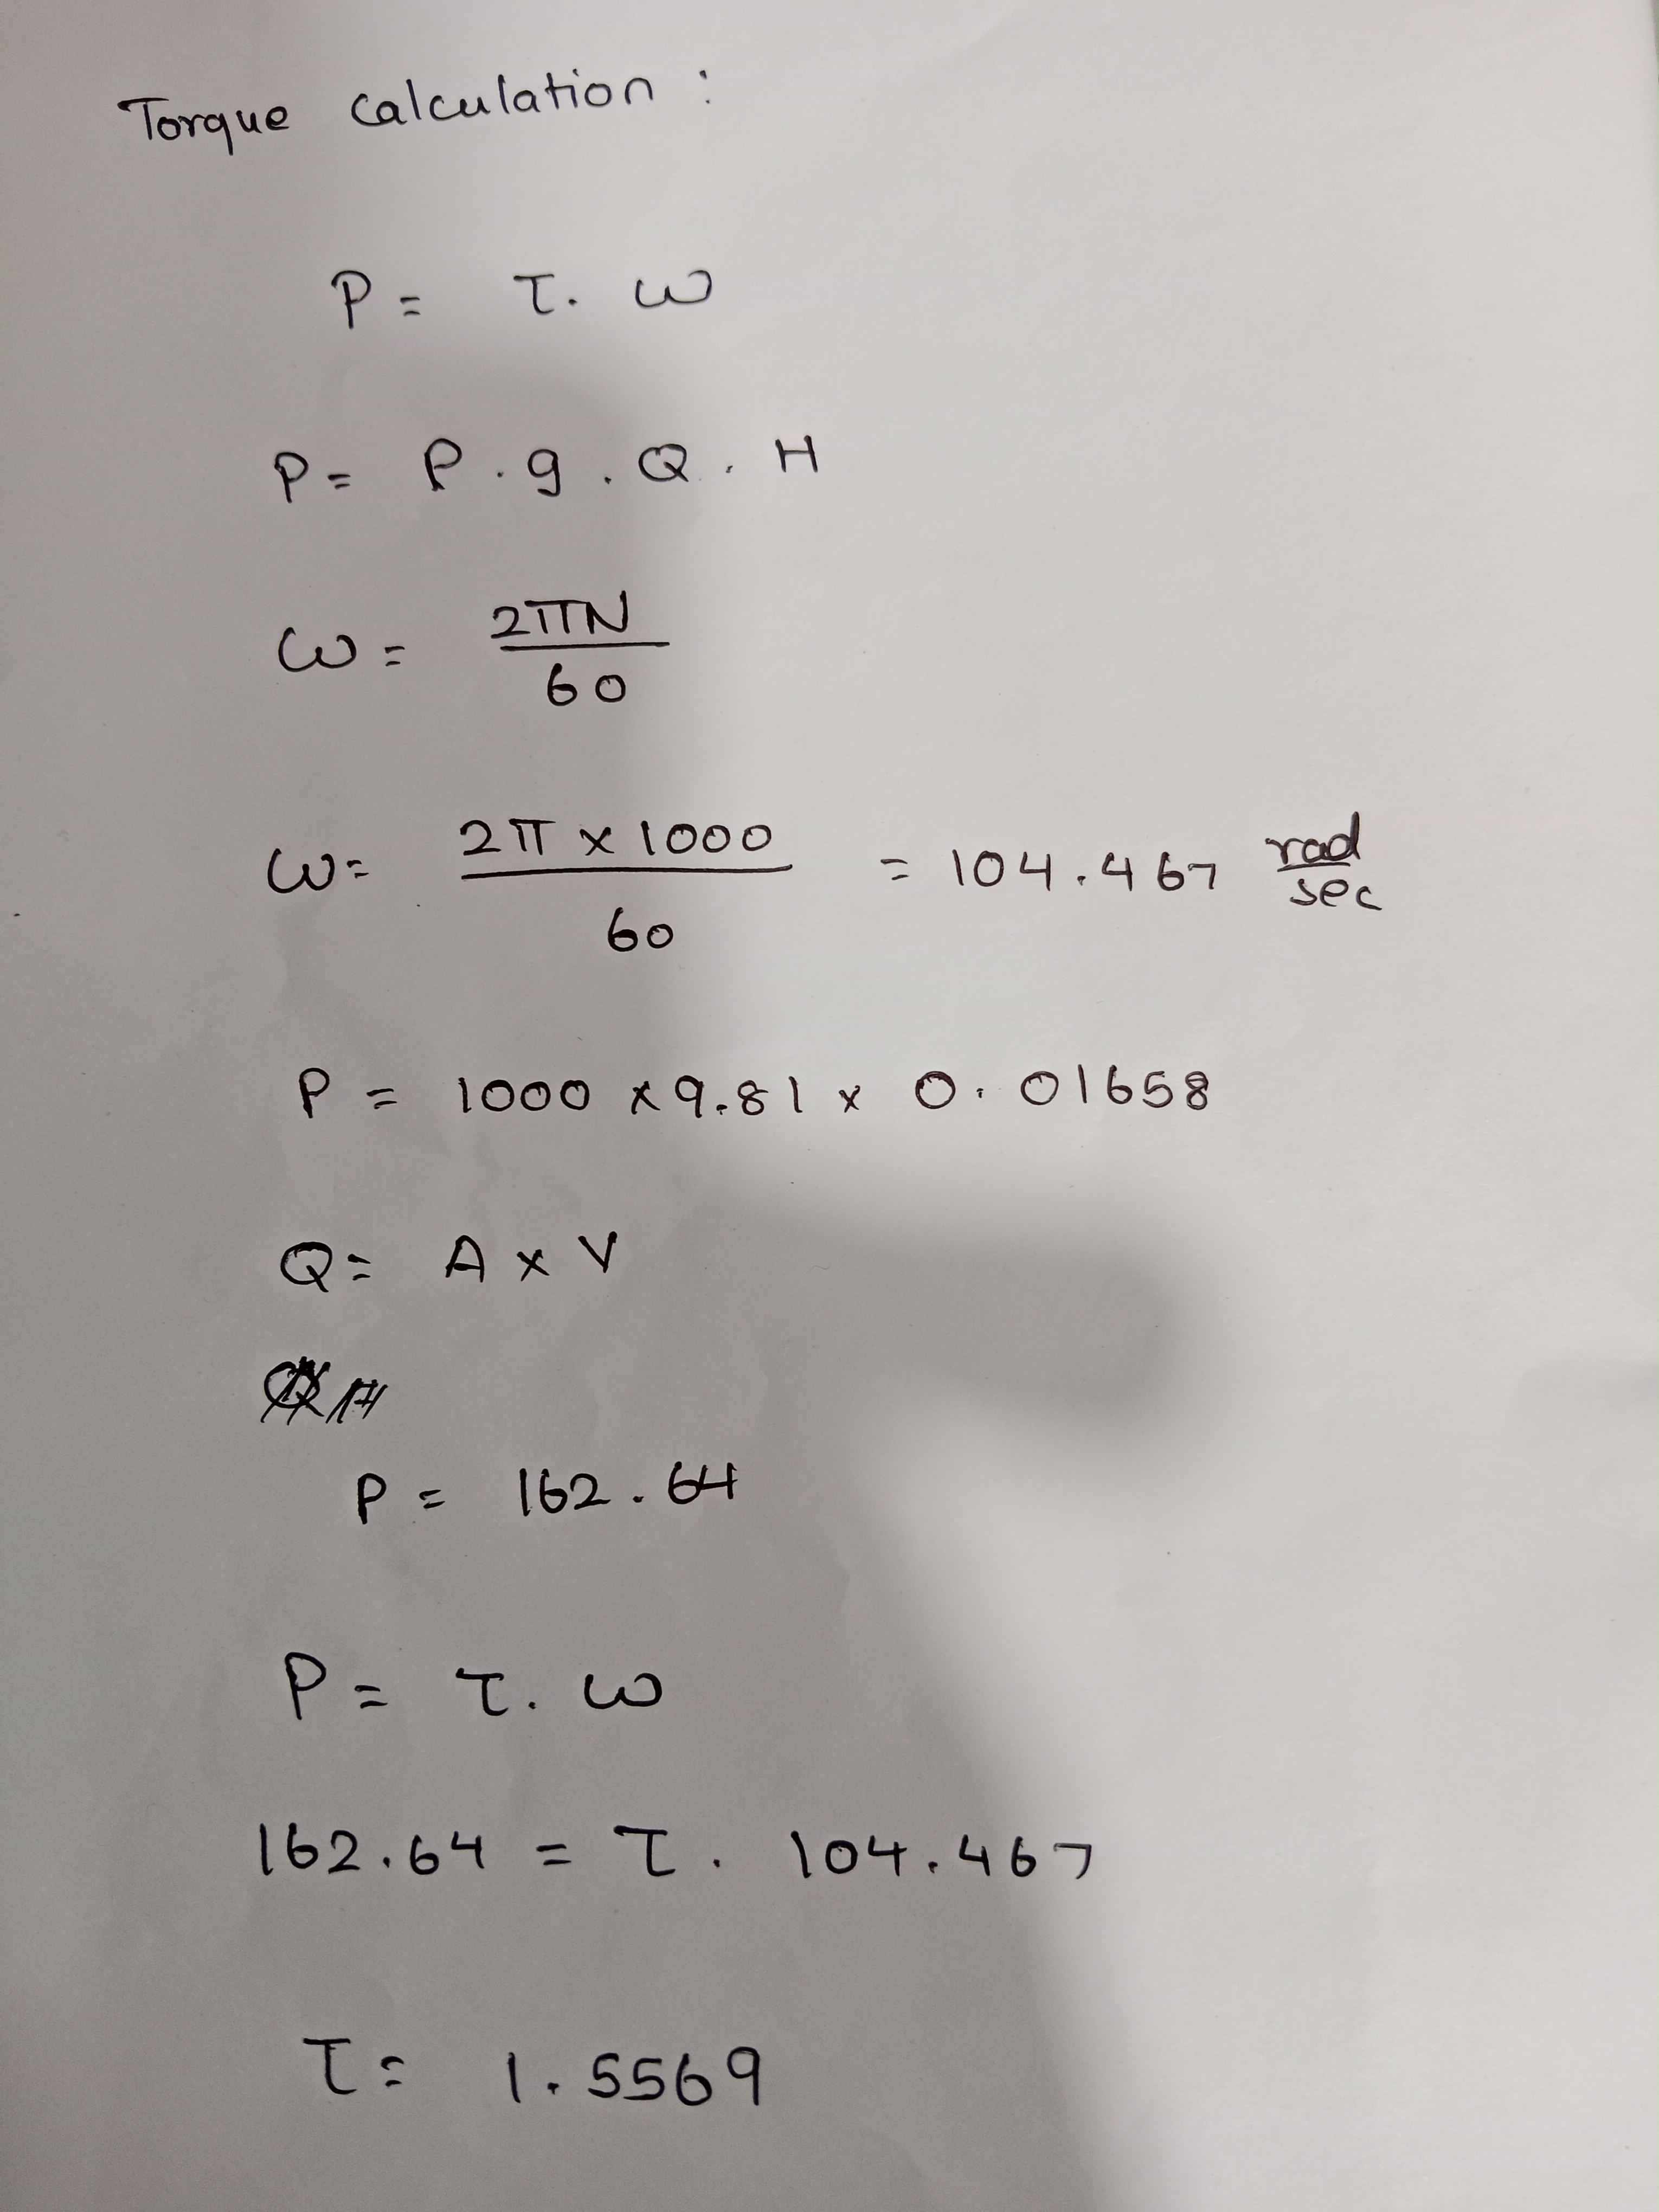 Torque Calculation :
P = τ. ω
P = ρ . g . Q . H
ω = 2πN / 60
ω = 2π x 1000 / 60 = 104.467 rad / sec
P = 1000 x 9.81 x 0.01658
Q = A x V
P = 162.64
P = τ. ω
162.64 = τ. 104.467
τ = 1.5569